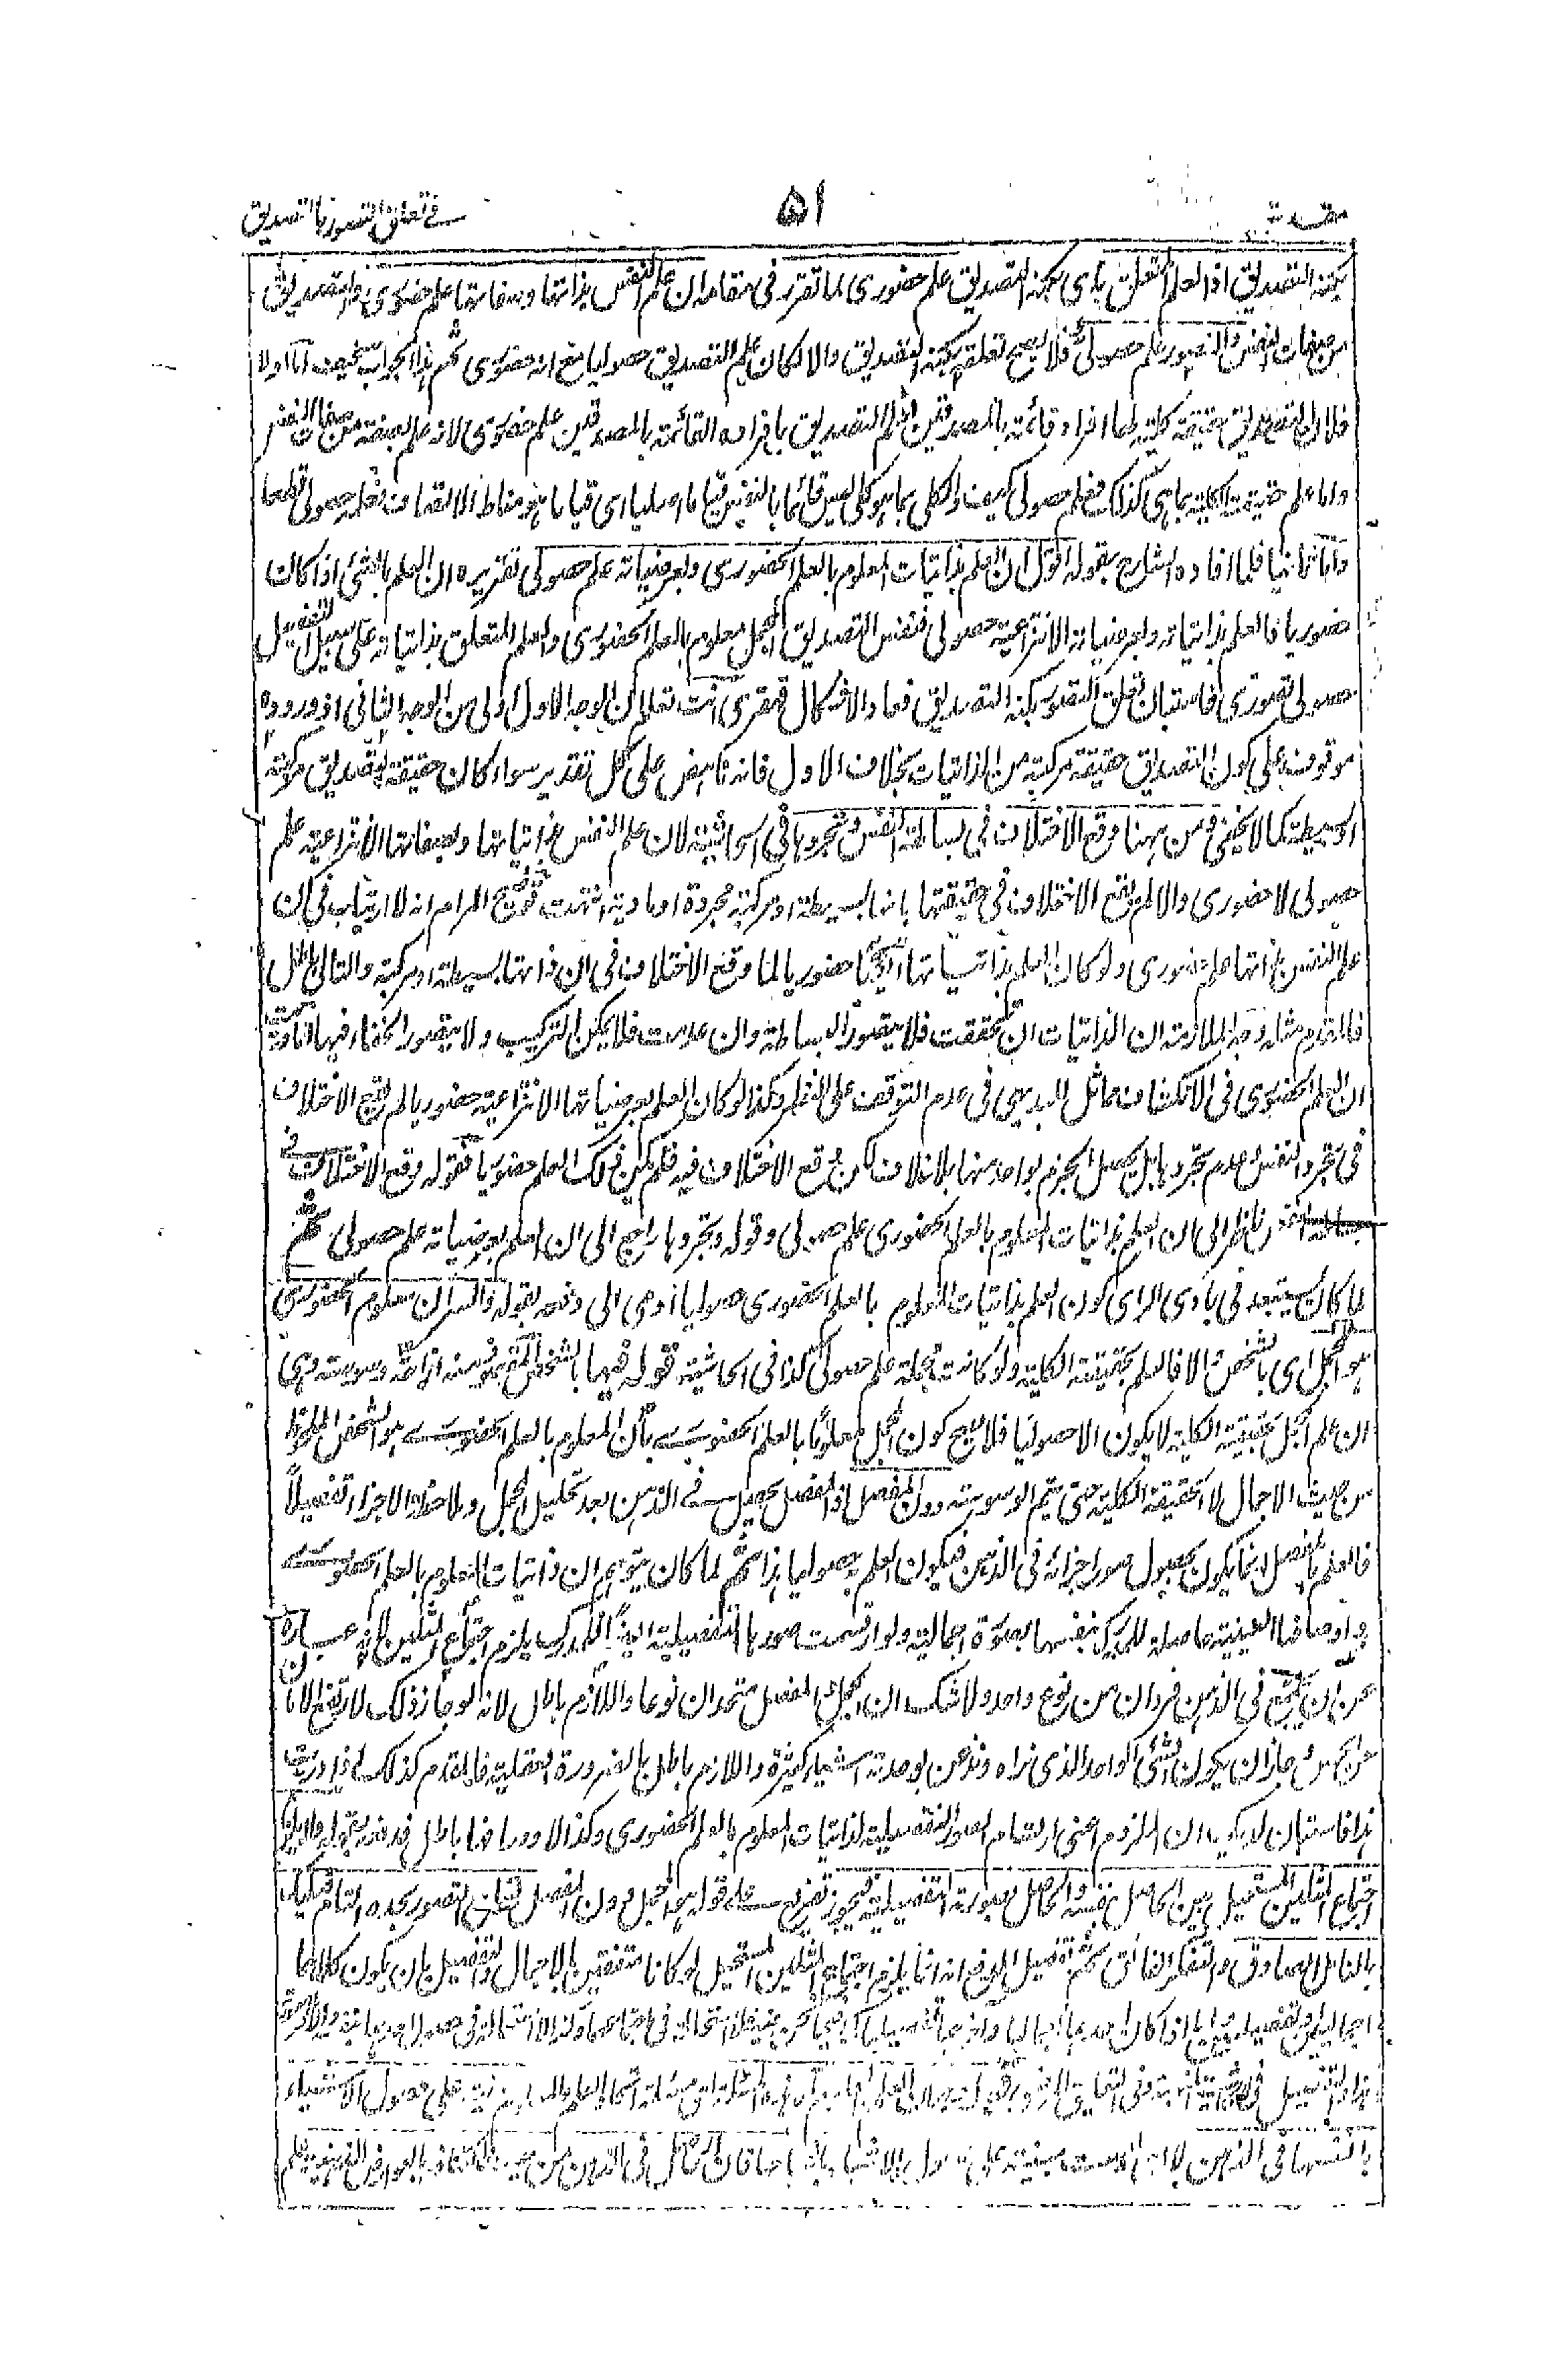 مقدمة
۵۱
في تعلق التصور بالتصديق
بكنه التصديق اذ العلم المتعلق بكنه التصديق علم حضوري لما تقرر في مقامه ان علم النفس بذاتها وصفاتها علم حضوري والتصديق
من صفات النفس والتصور علم حصولي فلا يصح تعلقه بكنه التصديق والا لكان علم التصديق حصوليا مع انه حضوري ثم هذا الجواب سخيف اما اولا
فلان التصديق حقيقة كلية لها افراد قائمة بالمصدقين فعلم التصديق بافراده القائمة بالمصدقين علم حضوري لانه علم لصفة من صفات النفس
واما علم حقيقته الكلية بما هي كذلك فعلم حصولي كيف والكلي بما هو كلي ليس قائما بالنفس قياما اصليا اي قياما هو مناط الاتصاف فعلمه حصولي قطعا
واما ثانيا فلما افاده الشارح بقوله اقول ان العلم بذاتيات المعلوم بالعلم الحضوري وبعرضياته علم حصولي تقريره ان العلم بالشئ اذا كان
حضوريا فالعلم بذاتياته وبعرضياته الانتزاعية حصولي فنفس التصديق المجمل معلوم بالعلم الحضوري والعلم المتعلق بذاتياته على سبيل التفصيل
حصولي تصوري فاستبان تعلق التصور بكنه التصديق فعاد الاشكال قهقرى انت تعلم ان الوجه الاول اولى من الوجه الثاني اذ وروده
موقوف على كون التصديق حقيقة مركبة من الذاتيات بخلاف الاول فانه ناهض على كل تقدير سواء كان حقيقة التصديق مركبة
او بسيطة كما لا يخفى ومن ههنا وقع الاختلاف في بساطة النفس وتجردها في الحاشية لان علم النفس بذاتياتها وبصفاتها الانتزاعية علم
حصولي لا حضوري والا لم يقع الاختلاف في حقيقتها بانها بسيطة او مركبة مجردة او مادية انتهت توضيح المرام انه لا ارتياب في ان
علم النفس بذاتها علم حضوري ولو كان العلم بذاتياتها ايضا حضوريا لما وقع الاختلاف في ان ذاتها بسيطة او مركبة والتالي باطل
فالمقدم مثله وجه الملازمة ان الذاتيات ان تحققت فلا يتصور البساطة وان عدمت فلا يمكن التركيب ولا يتصور الخفاء فيها
ان العلم الحضوري في الانكشاف مماثل للبديهي في عدم التوقف على النظر وكذا لو كان العلم بعرضياتها الانتزاعية حضوريا لم يقع الاختلاف
في تجرد النفس وعدم تجردها بل يحصل الجزم بواحد منهما بلا خلاف لكن وقع الاختلاف فيه فلم يكن ذلك العلم حضوريا فقوله وقع الاختلاف في
بساطة النفس ناظر الى ان العلم بذاتيات المعلوم بالعلم الحضوري علم حصولي وقوله وتجردها راجع الى ان العلم بعرضياته علم حصولي ثم
لما كان يستبعد في بادي الراي كون العلم بذاتيات المعلوم بالعلم الحضوري حصوليا اومى الى دفعه بقوله والسر ان معلوم الحضوري
هو المجمل اي بالشخص والا فالعلم بحقيقته الكلية ولو كانت مجملة علم حصولي كذا في الحاشية قوله فيها بالشخص المقصود منه ازاحة وسوسة وهي
ان علم المجمل بحقيقته الكلية لا يكون الا حصوليا فلا يصح كون المجمل معلوما بالعلم الحضوري بان المعلوم بالعلم الحضوري هو الشخص الملحوظ
من حيث الاجمال لا الحقيقة الكلية حتى يتم الوسوسة دون المفصل اذ المفصل يحصل في الذهن بعد تحليل المجمل وملاحظة الاجزاء تفصيلا
فالعلم بالمفصل انما يكون بحصول صور اجزائه في الذهن فيكون العلم به حصوليا هذا ثم لما كان يتوهم ان ذاتيات المعلوم بالعلم الحضوري
واوصافها العينية حاصلة للمدرك بنفسها بصورة اجمالية ولو ارتسمت صورها التفصيلية ايضا للمدرك يلزم اجتماع المثلين لانه عبارة
عن ان يجتمع في الذهن فردان من نوع واحد ولا شك ان المجمل والمفصل متحدان نوعا واللازم باطل لانه لو جاز ذلك لارتفع الامان
عن الحس وجاز ان يكون الشئ الواحد الذي نراه ونذعن بوحدته اشياء كثيرة واللازم باطل بالضرورة العقلية فالمقدم كذلك اذا دريت
هذا فاستبان لديك ان الملزوم اعني ارتسام الصور التفصيلية لذاتيات المعلوم بالعلم الحضوري وكذا لاوصافها باطل فدفعه بقوله ولا يلزم
اجتماع المثلين المستحيل بين الحاصل بنفسه والحاصل بصورته التفصيلية فيجوز تفريع على قوله هو المجمل دون المفصل تعلق التصور بحده التام فعليك
بالتامل الصادق والتفكر الفائق ثم تفصيل الدفع انه انما يلزم اجتماع المثلين المستحيل لو كانا متفقين بالاجمال والتفصيل بان يكون كلاهما
اجماليا او تفصيليا واما اذا كان احدهما اجماليا والآخر تفصيليا